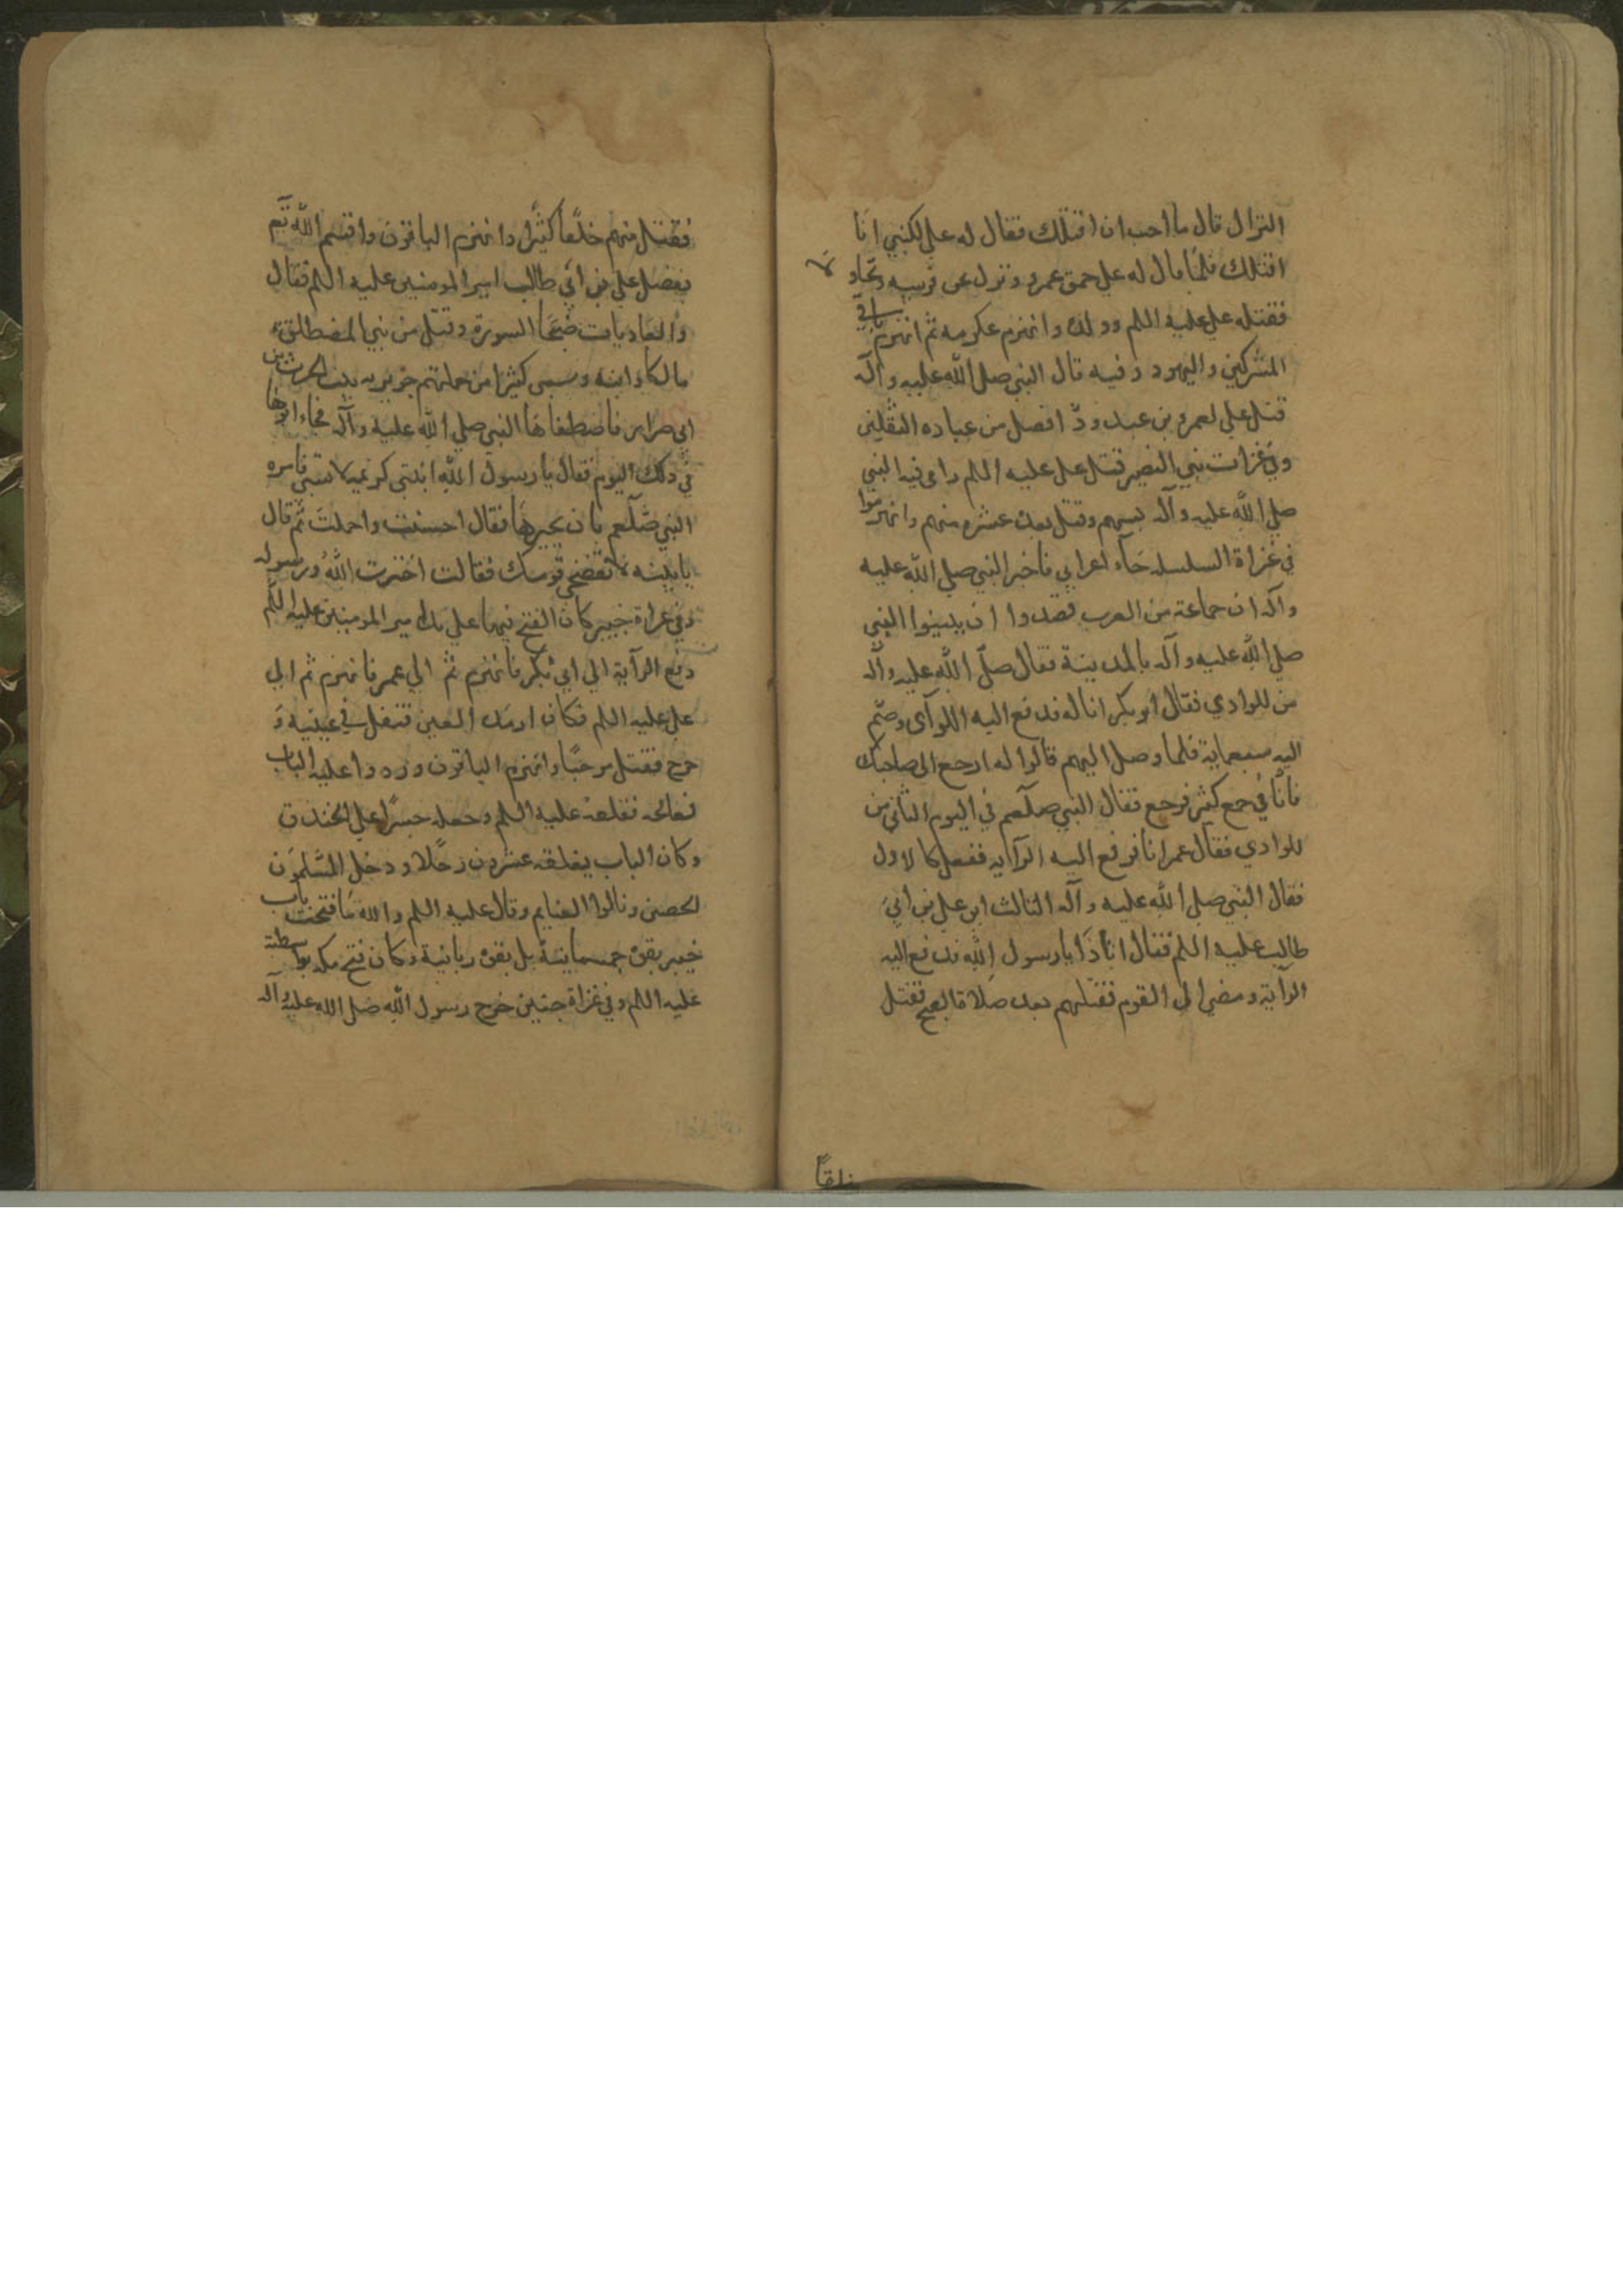 النزال قال ما احب ان اقتلك فقال له علي لكنني انا
اقتلك فلما قال له علي حمق عمرو ونزل عن فرسه وتجاولا
فقتله علي عليه اللم وولده وانهزم عكرمه ثم انهزم باقي
المشركين واليهود وفيه قال النبي صلي الله عليه وآله
قتل علي لعمرو بن عبد ودّ افضل من عباده الثقلين
وفي غزات بني النضير قتل علي عليه اللم رامي فيه النبي
صلي الله عليه وآله بسهم وقتل بعده عشره منهم وانهزموا
في غزاة السلسله جآء اعرابي فاخبر النبي صلي الله عليه
وآله ان جماعة من العرب قصدوا ان يبيتوا النبي
صلي الله عليه وآله بالمدينة فقال صلّي الله عليه وآله
من للوادي فقال ابو بكر انا له فدفع اليه اللوآى وضم
اليه سبعماية فلما وصل اليهم قالوا له ارجع الى صاحبك
فانّا في جمع كثير فرجع فقال النبي صلعم في اليوم الثاني من
للوادي فقال عمر انا فرفع اليه الرآيه ففعل كالاول
فقال النبي صلي الله عليه وآله الثالث اين علي بن ابي
طالب عليه اللم فقال انا ذا يا رسول الله فدفع اليه
الرآية ومضي الى القوم فقتلهم بعد صلاة الصبح فقتل
فقتل منهم خلقًا كثيًرا وانهزم الباقون واقسم الله تعم
بفضل علي بن ابي طالب امير المومنين عليه اللم فقال
والعاديات ضبحا السورة وقتل من بني المضطلق
مالكا وابنه وسبى كثيرا من جملتهم جويريه بنت الحرث بن
ابي ضرار فاصطفاها النبي صلي الله عليه وآله فجاء ابوها
في ذلك اليوم فقال يا رسول الله ابنتي كريمه لا تسبى فامره
النبي صلعم بان يخيرها فقال احسنت واجملت ثم قال
يا بنيه لا تفضحي قومك فقالت اخترت الله ورسوله
وفي غزاة خيبر كان الفتح فيها علي يد امير المومنين عليه اللم
دفع الرآية الي ابي بكر فانهزم ثم الي عمر فانهزم ثم الي
علي عليه اللم فكان ارمد العين فتفل في عينيه و
خرج فقتل مرحبًا وانهزم الباقون وردوا عليه الباب
فعالجه فقلعه عليه السلم وجعله جسرًا علي الخندق
وكان الباب يغلقه عشرون رجلا ودخل المسلمون
الحصن ونالوا الغنايم وقال عليه اللم والله ما فتحت باب
خيبر بقوة جسمانية بل بقوة ربانية وكان فتح مكه بواسطته
عليه اللم وفي غزاة حنين خرج رسول الله صلي الله عليه وآله